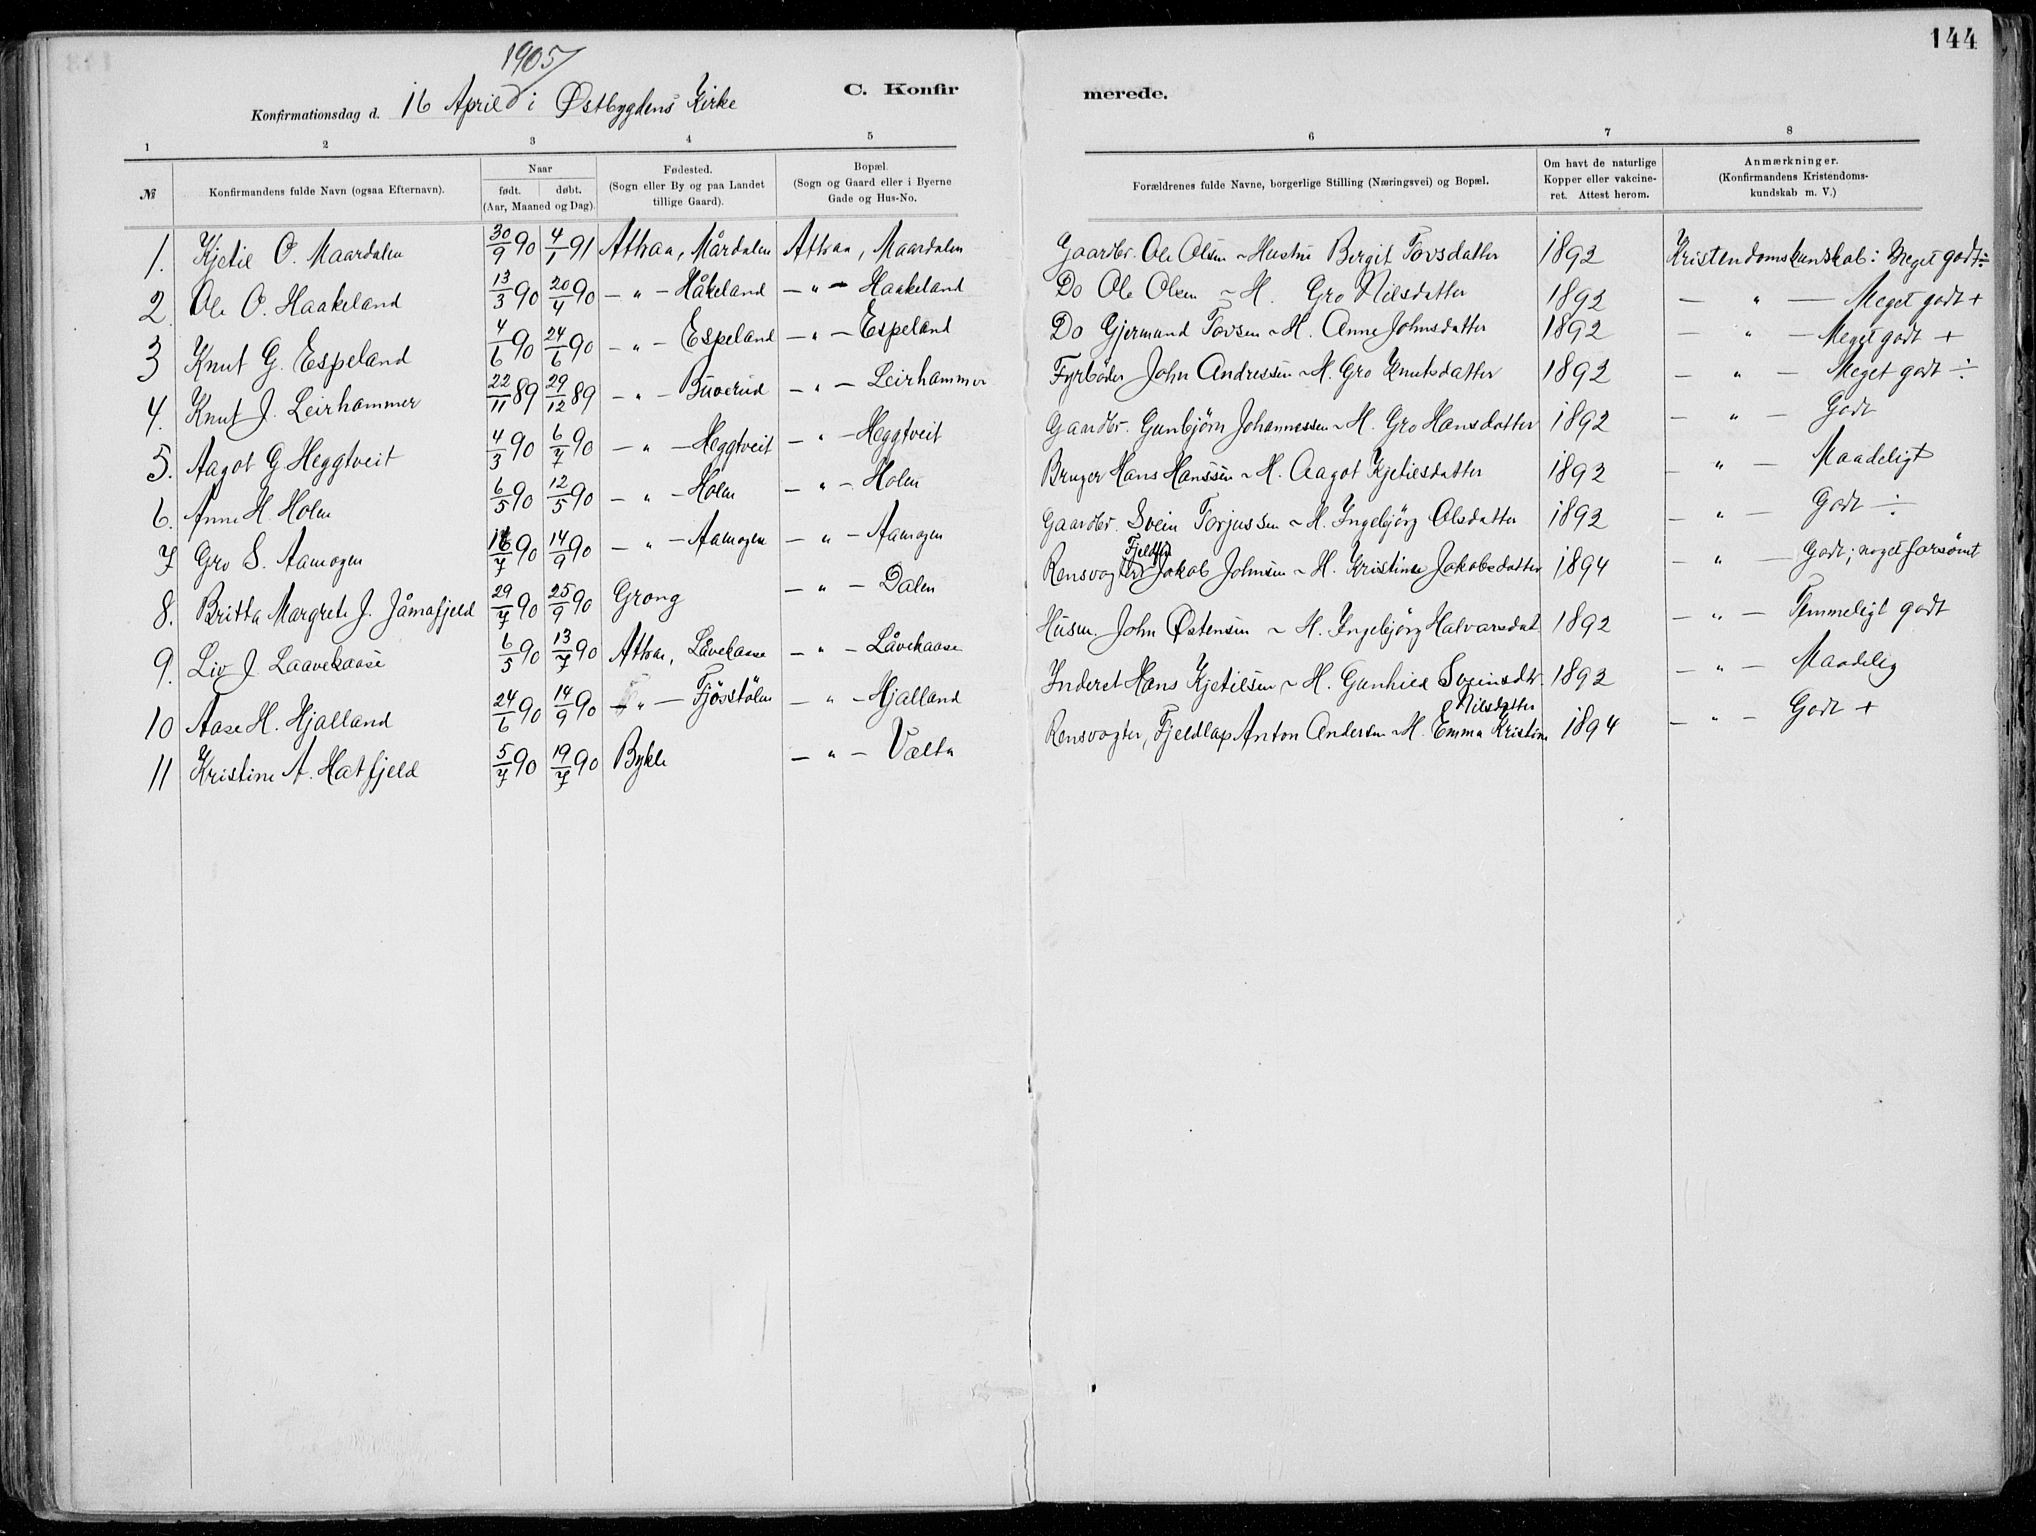 144
1905
C. Konfirmerede.
Konfirmationsdag d. 16 April i Østbygdens Kirke
1 2 3 4 5 6 7 8
№ Konfirmandens fulde Navn (ogsaa Efternavn). Naar født. døbt. (Aar, Maaned og Dag). Fødested. (Sogn eller By og paa Landet tillige Gaard). Bopæl. (Sogn og Gaard eller i Byerne Gade og Hus-No. Forældrenes fulde Navne, borgerlige Stilling (Næringsvei) og Bopæl. Om havt de naturlige Kopper eller vakcineret. Attest herom. Anmærkninger. (Konfirmandens Kristendomskundskab m. V.)
1. Kjetil O. Maardalen 30/9 90 4/1 91 Attraa, Mårdalen Attraa, Maardalen Gaardbr. Ole Olsen ~ Hustru Birgit Tovsdatter 1892 Kristendomskunskab: Meget godt ÷
2. Ole O. Haakeland 13/3 90 20/4 90 — " — Håkeland — " — Haakeland Do Ole Olsen ~ H. Gro Nilsdatter 1892 — " — Meget godt +
3 Knut G. Espeland 4/6 90 24/6 90 — " — Espeland — " — Espeland Do Gjermund Tovsen ~ H. Anne Johnsdatter 1892 — " — Meget godt +
4. Knut J. Leirhammer 22/11 89 29/12 89 — " — Buverud — " — Leirhammer Fyrbøder John Andressen ~ H. Gro Knutsdatter 1892 — " — Meget godt ÷
5. Aagot G Heggtveit 4/3 90 6/7 90 — " — Heggtveit — " — Heggtveit Gaardbr. Gunbjørn Johannessen ~ H. Gro Hansdatter 1892 — " — Godt
6. Anne H. Holm 6/5 90 12/5 90 — " — Holm — " — Holm Bruger Hans Hanssen ~ H. Aagot Kjetilsdatter 1892 — " — Maadeligt
7 Gro S. Aamogen 16/7 90 14/9 90 — " — Aamogen — " — Aamogen Gaardbr. Svein Torjussen ~ H. Ingebjørg Olsdatter 1892 — " — Godt ÷
8. Britta Margrete J. Jåmafjeld 29/7 90 25/9 90 Grong — " — Dalen Rensvogter Jakob Johnsen ~ H. Kristine Jakobsdatter 1894 — " — Godt; noget forsømt
9. Liv J. Laavekaase 6/5 90 13/7 90 Attraa, Låvekaase — " — Låvekaase Husm. John Østensen ~ H. Ingebjørg Halvarsdat 1892 — " — Temmeligt godt
10 Aase H. Hjalland 24/6 90 14/9 90 — " — Fjøsstølen — " — Hjalland Inderst Hans Kjetilsen ~ H. Gunhild Sveinsdtr. 1892 — " — Maadelig
11 Kristine A. Hatfjeld 5/7 90 19/7 90 Bykle — " — Vaalta Rensvogter, Fjeldlap Anton Andersen ~ H. Emma Kristine Nilsdatter 1894 — " — Godt +